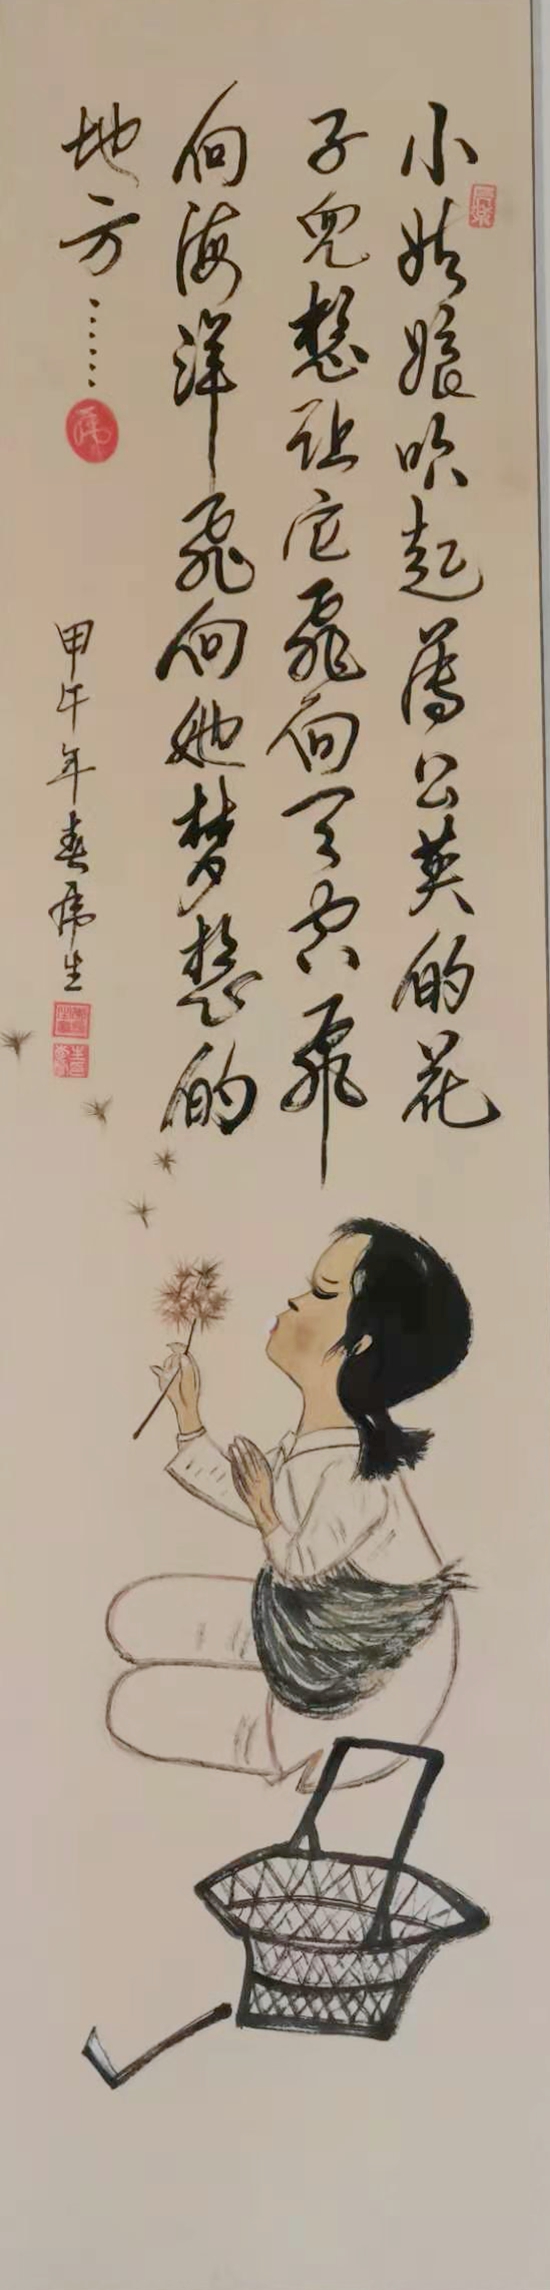 小姑娘吹起蒲公英的花
子兒想让它飛向天空飛
向海洋飛向她梦想的
地方……
甲午年春虎生